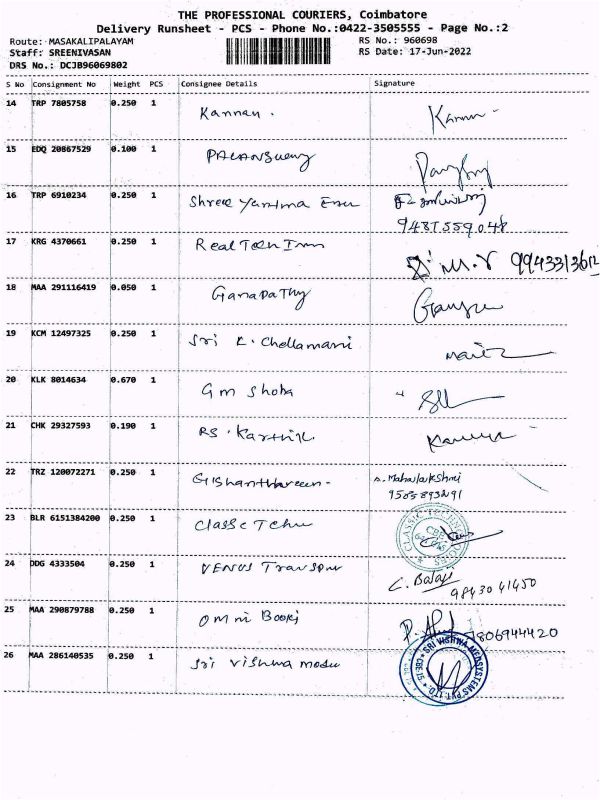 THE PROFESSIONAL COURIERS, Coimbatore
Delivery Runsheet - PCS - Phone No.:0422-3505555 - Page No.:2
Route: MASAKALIPALAYAM RS No.: 960698
Staff: SREENIVASAN RS Date: 17-Jun-2022
DRS No.: DCJB96069802
S No Consignment No Weight PCS Consignee Details Signature
14 TRP 7805758 0.250 1 Kannan.
15 EDQ 20867529 0.100 1
16 TRP 6910234 0.250 1 Shree Yantma
17 KRG 4370661 0.250 1 Real Tech Inn M.Y 9943313612
18 MAA 291116419 0.050 1 Ganapathy
19 KCM 12497325 0.250 1 Sri K. Chellamani
20 KLK 8014634 0.670 1 Gm Shoba
21 CHK 29327593 0.190 1 RS. Karthik
22 TRZ 120072271 0.250 1 A. Mahalakshmi
23 BLR 6151384200 0.250 1 Classc Tchu CLASSIC TECHNOLOGIES
24 DDG 4333504 0.250 1 VENUS Transpor C. Balaji
9843041450
25 MAA 290879788 0.250 1 Omni Books 9806944420
26 MAA 286140535 0.250 1 Sri Vishwa SRI VISHWA MEDSYSTEMS PVT. LTD. CBE-15